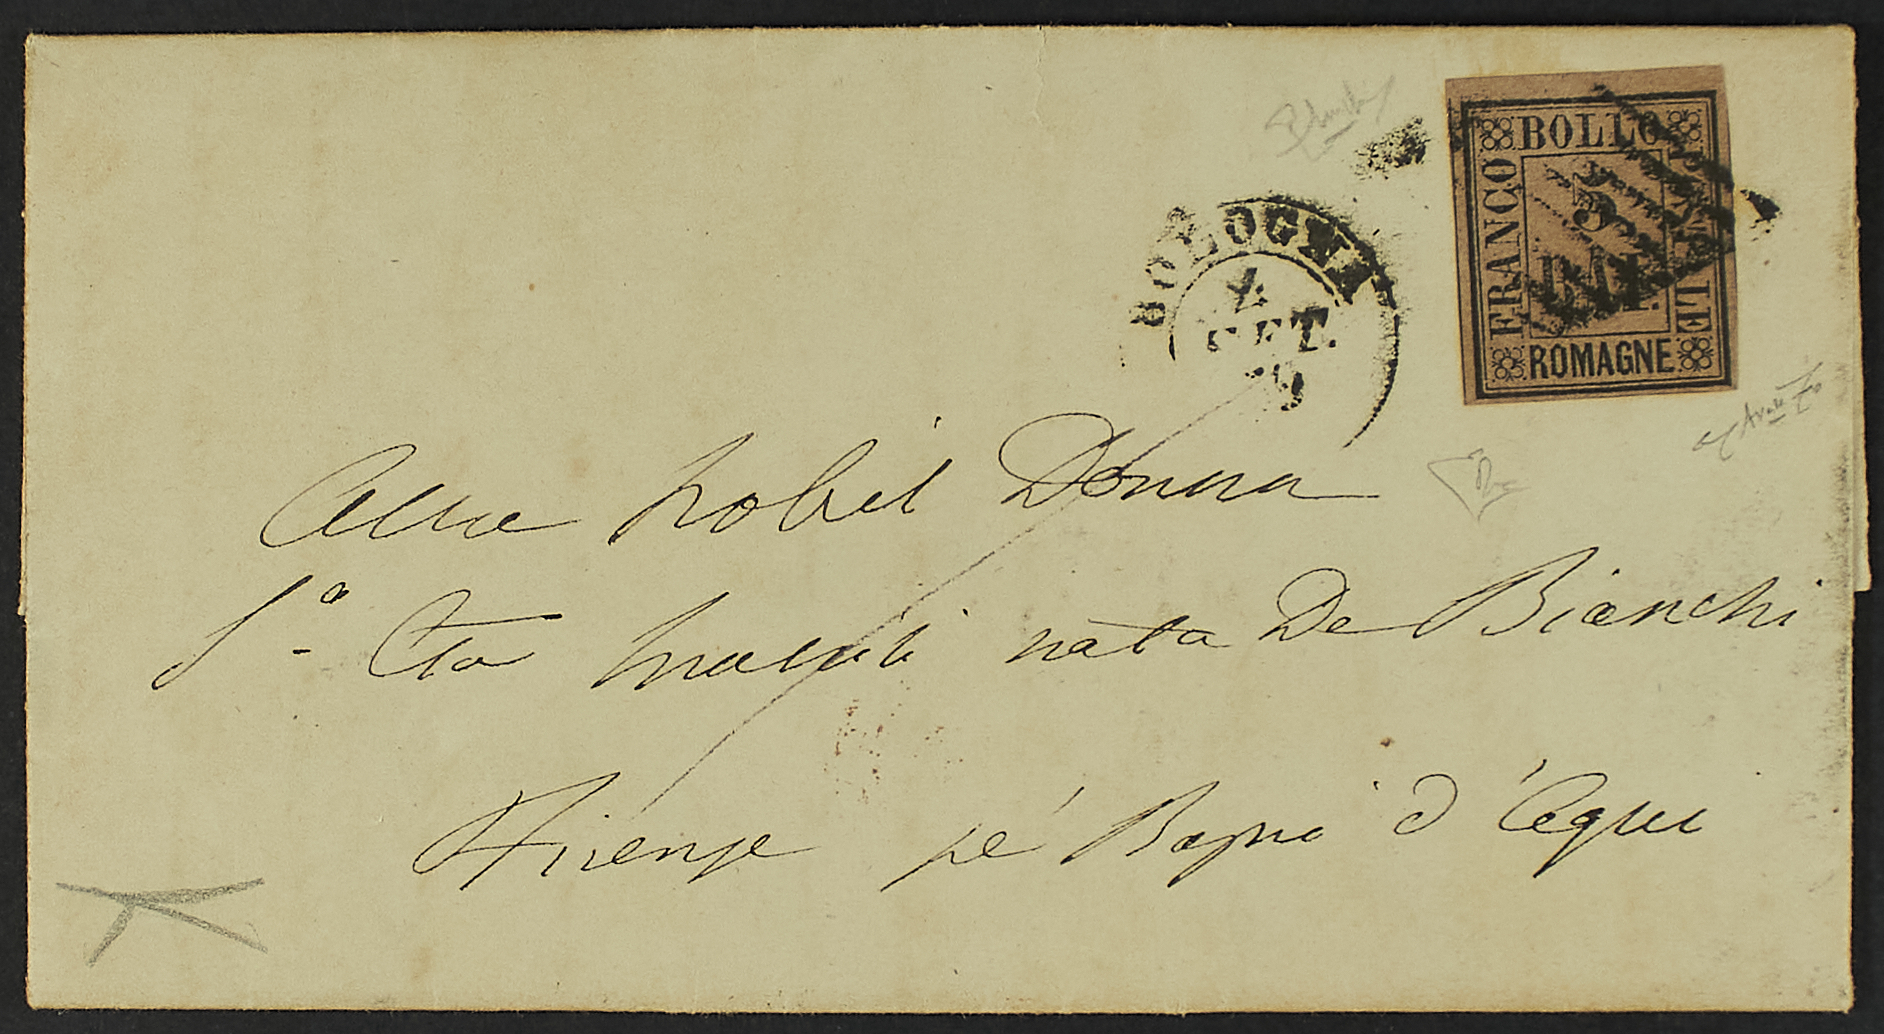 FRANCO BOLLO POSTALE
5
BAI.
ROMAGNE
BOLOGNA
4
SET.
59
Alla Nobil Donna
S.a Cta nata De Bianchi
Firenze pe' Bagni d'Acqui